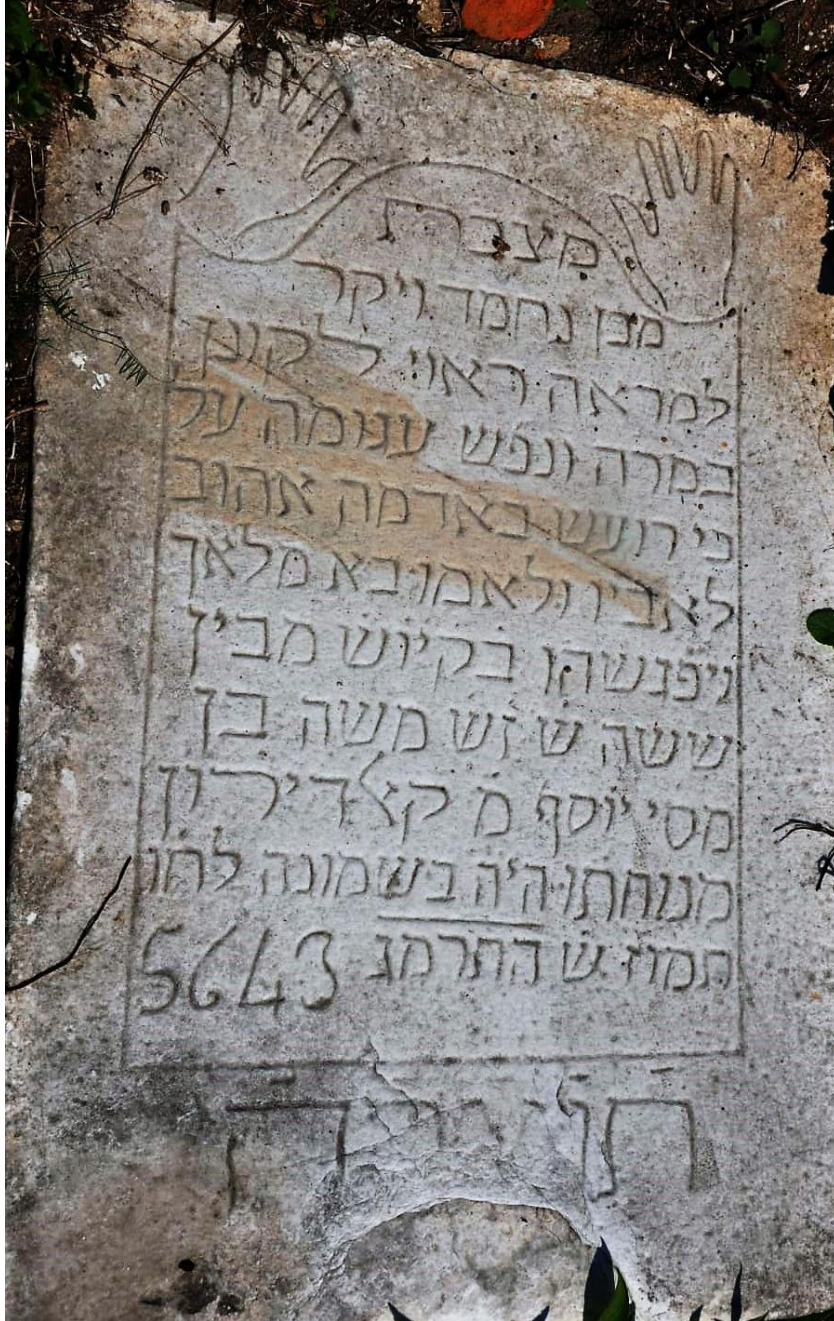 מצברת
מבן נחמד ויקר
למראה ראוי לקונן
במרה ונפש ענומה על
כי רועש באדמה אהוב
לאביו ולאמו בא מלאך
ויפגשהו בקיוש מבין
ששה ש זש משה בן
מסי יוסף מ קאדירון
מנוחתו ה'ה בשמונה לחו
תמוז ש התרמג 5643